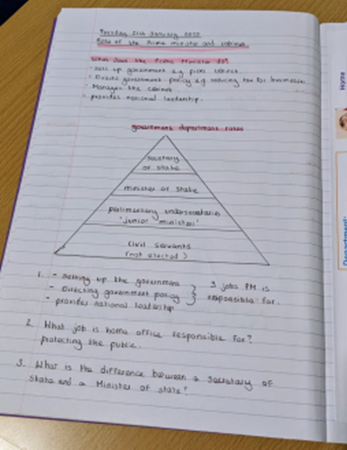 Tuesday 21st January 2020
Role of the Prime minister and cabinet.
What does the Prime Minister do?
- sets up government e.g. picks cabinet
- Directs government policy e.g. reducing tax for businesses
- Manages the cabinet
- provides national leadership.
government department roles
Secretary
of state
minister of state
parliamentary undersecretaries
'junior ministers'
Civil Servants
(not elected)
1. - Setting up the government
- Directing government policy
- provides national leadership
3 jobs PM is
responsible for.
2. What job is home office responsible for?
protecting the public.
3. What is the difference between a Secretary of
state and a Minister of state?
Home